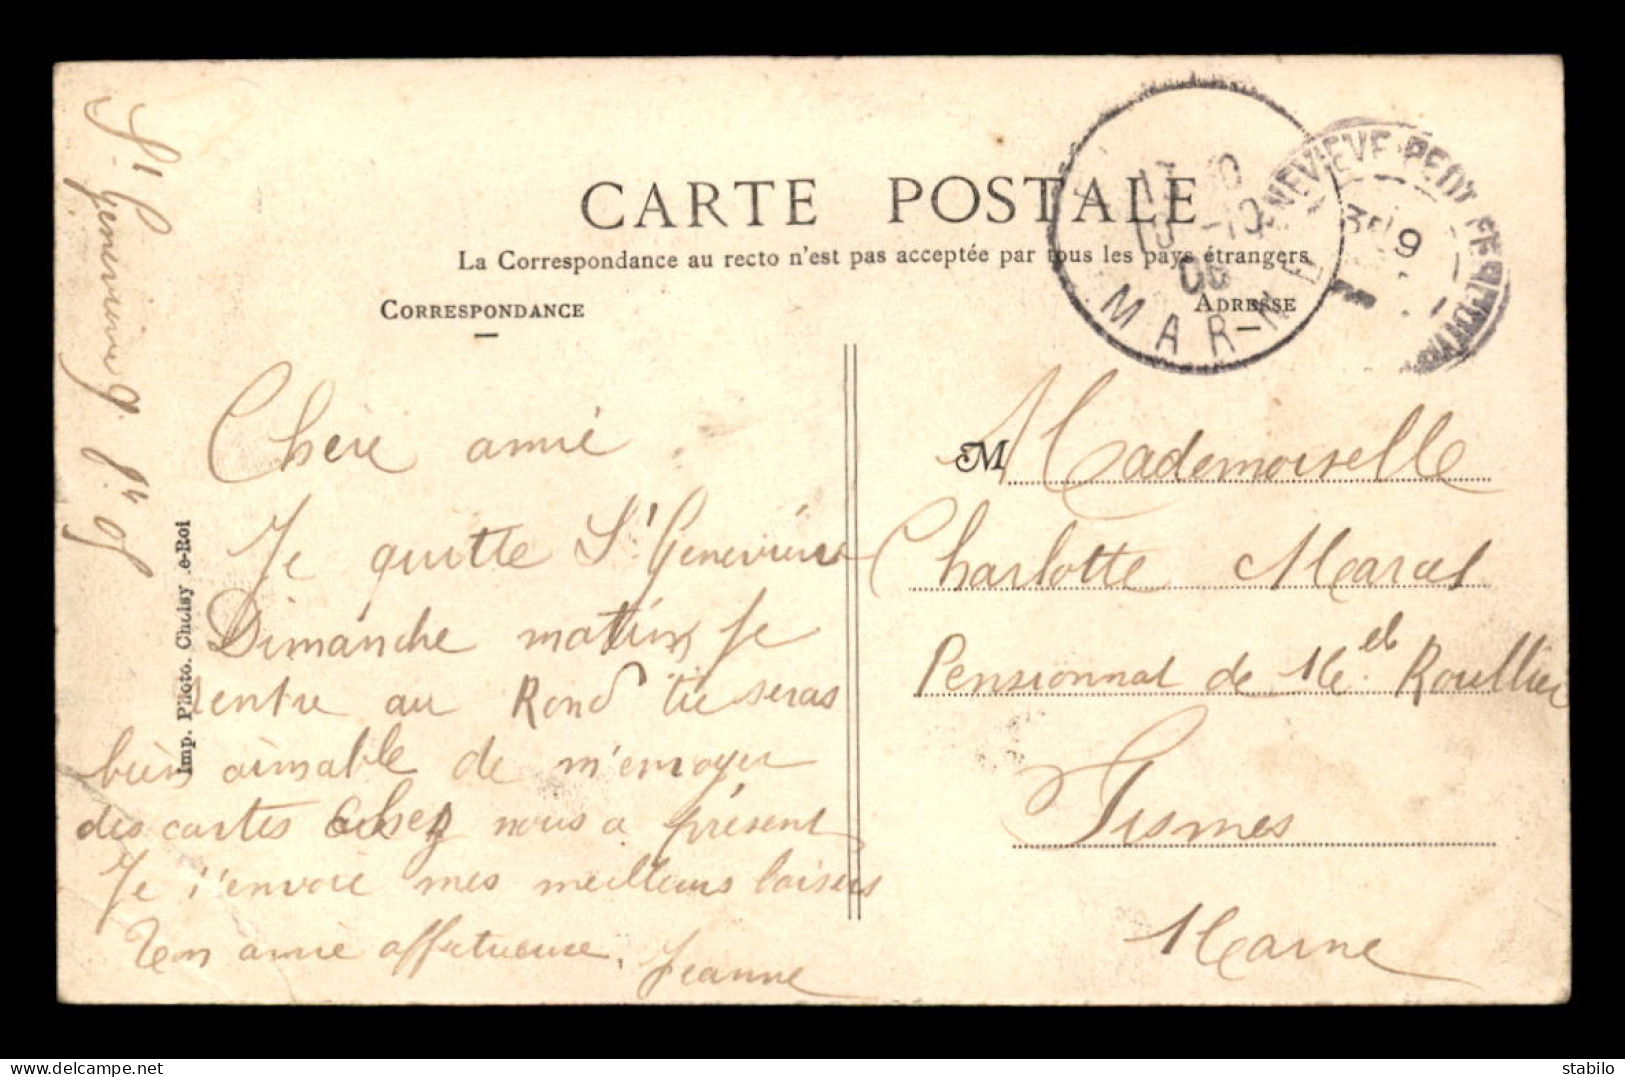 CARTE POSTALE
La Correspondance au recto n'est pas acceptée par tous les pays étrangers
CORRESPONDANCE
ADRESSE
13
10 -10
06
MARNE
NEVIEVE-PETIT FERRICHOT
9
St Genevieve 9
Imp. Photo. Choisy-le-Roi
Chère amie
Je quitte St Genevieve
Dimanche matin Je
rentre au Rond tu seras
bien aimable de m'envoyer
des cartes chez nous a présent
Je t'envoie mes meilleurs baisers
Ton amie affectueuse. Jeanne
M Mademoiselle
Charlotte Marcel
Pensionnat de Mel Roullier
Fismes
Marne